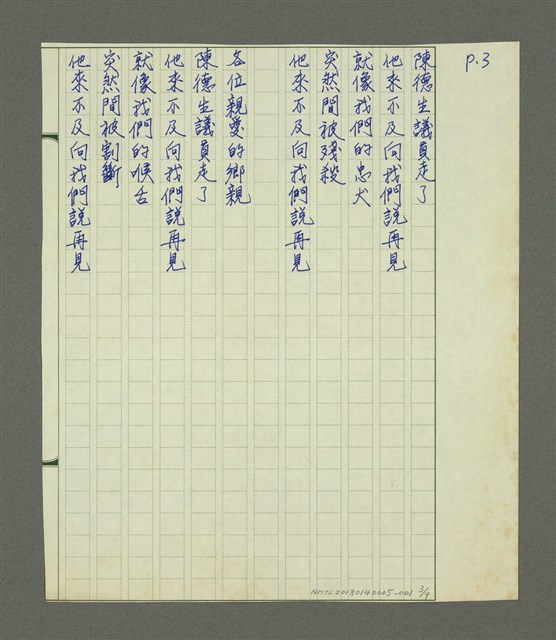 p.3
陳德生議員走了
他來不及向我們說再見
就像我們的忠犬
突然間被殘殺
他來不及向我們說再見
各位親愛的鄉親
陳德生議員走了
他來不及向我們說再見
就像我們的喉舌
突然間被割斷
他來不及向我們說再見
NMTL20180140005-001 3/9